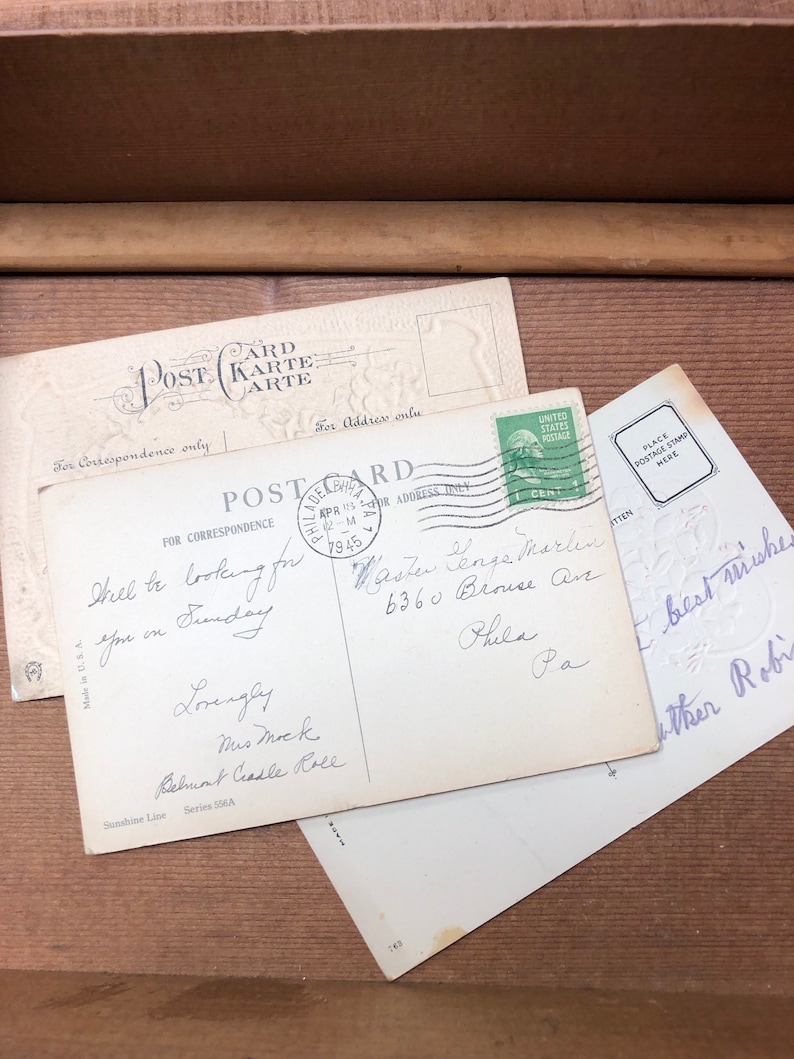 POST CARD
KARTE
CARTE
For Correspondence only
For Address only
POST CARD
FOR CORRESPONDENCE
FOR ADDRESS ONLY
PHILADELPHIA, PA.
APR 18
12 - M
1945
UNITED
STATES
POSTAGE
1 CENT 1
Will be looking for
you on Sunday
Lovingly
Mrs Mock
Belmont Cradle Roll
Master George Martin
6360 Brouse Ave
Phila
Pa
Made in U. S. A.
Sunshine Line Series 556A
PLACE
POSTAGE STAMP
HERE
best wishes
Robi
MADE